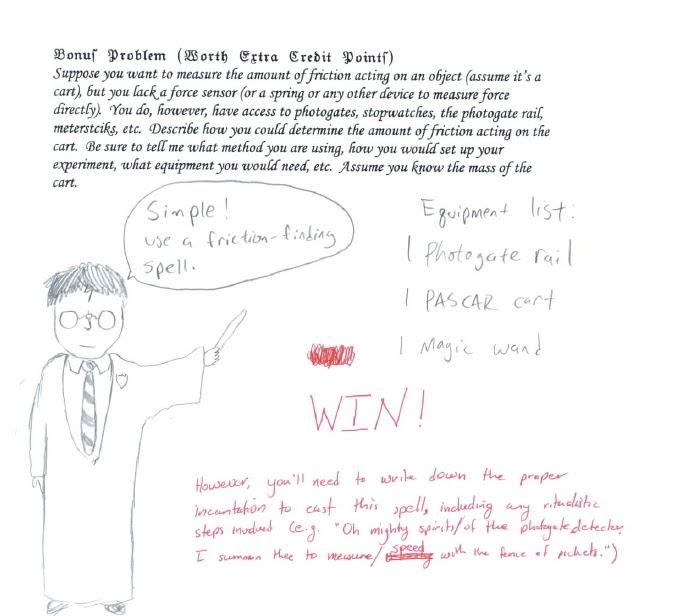 Bonus Problem (Worth Extra Credit Points)
Suppose you want to measure the amount of friction acting on an object (assume it's a
cart), but you lack a force sensor (or a spring or any other device to measure force
directly). You do, however, have access to photogates, stopwatches, the photogate rail,
meterstciks, etc. Describe how you could determine the amount of friction acting on the
cart. Be sure to tell me what method you are using, how you would set up your
experiment, what equipment you would need, etc. Assume you know the mass of the
cart.
Simple!
use a friction-finding
spell.
Equipment list:
1 Photogate rail
1 PASCAR cart
1 Magic wand
WIN!
However, you'll need to write down the proper
incantation to cast this spell, including any ritualistic
steps involved (e.g. "Oh mighty spirits/of the photogate detector,
I summon thee to measure/ speed with the fence of pickets.")